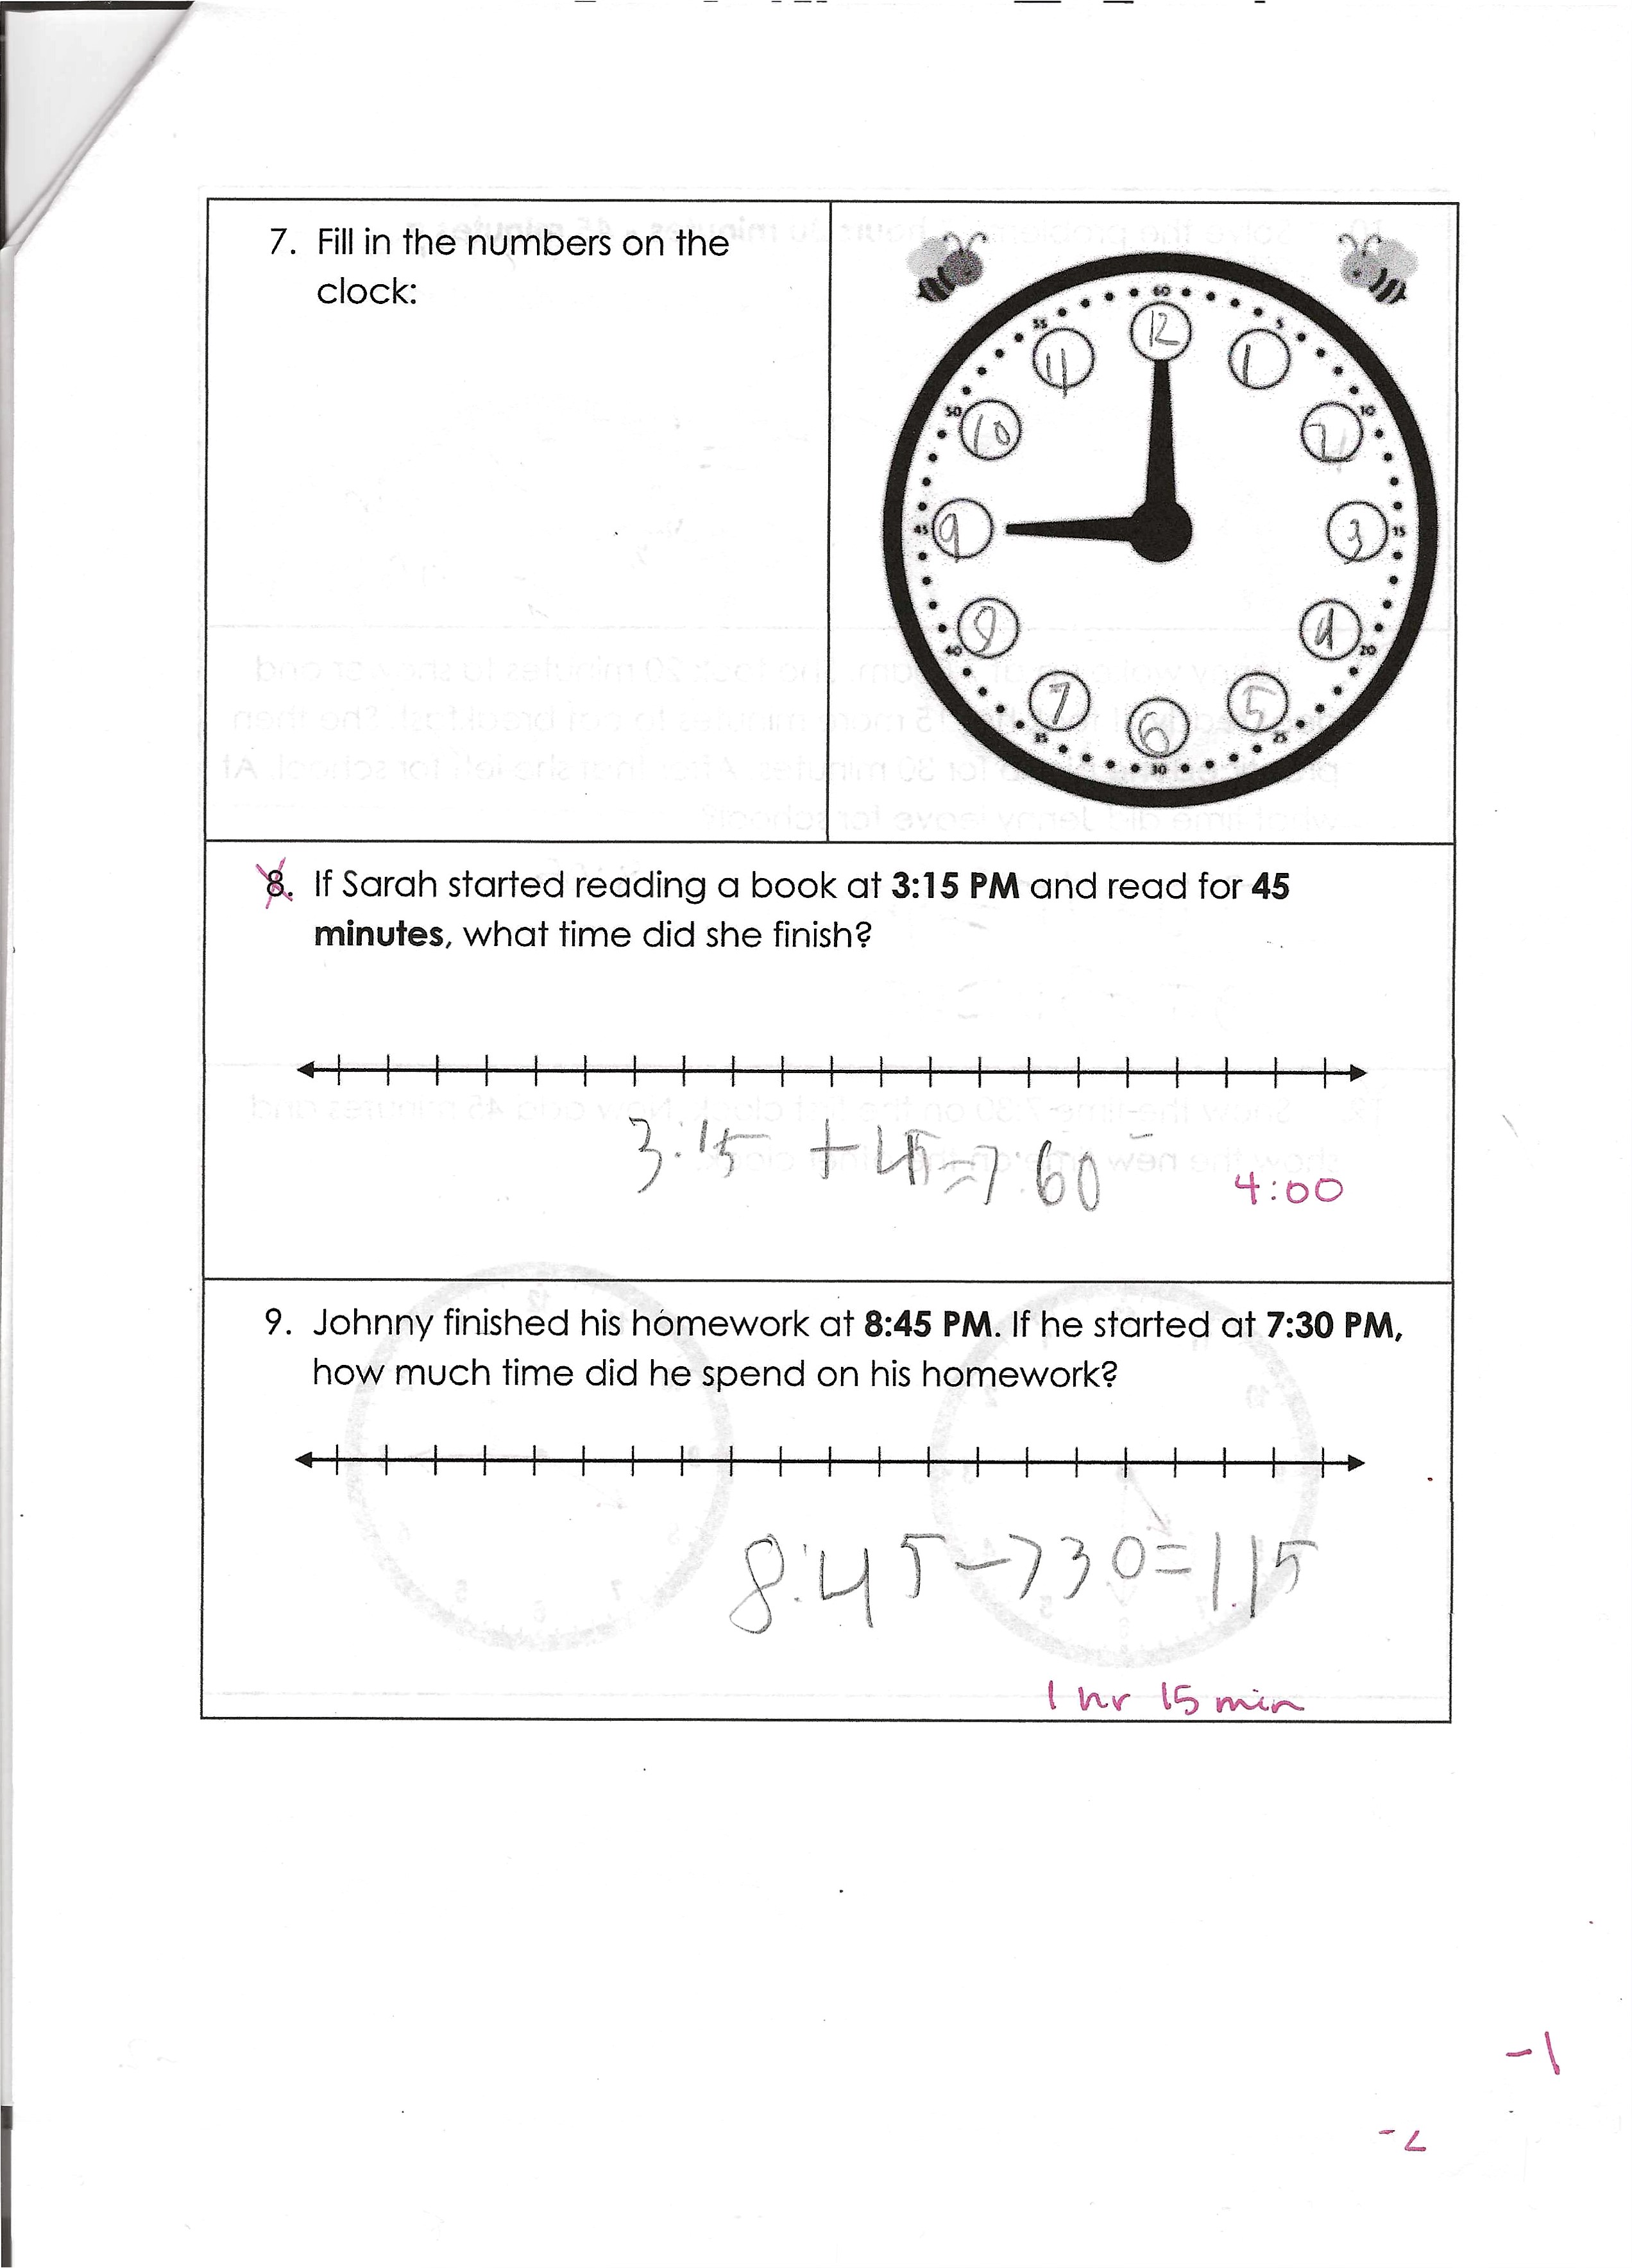 7. Fill in the numbers on the
clock:
60
55
5
12
11
1
50
10
10
2
45
9
3
15
8
4
40
20
7
5
6
35
25
30
8. If Sarah started reading a book at 3:15 PM and read for 45
minutes, what time did she finish?
3:15 + 45=7:60
4:00
9. Johnny finished his homework at 8:45 PM. If he started at 7:30 PM,
how much time did he spend on his homework?
8:45-730=1.15
1 hr 15 min
-1
-2